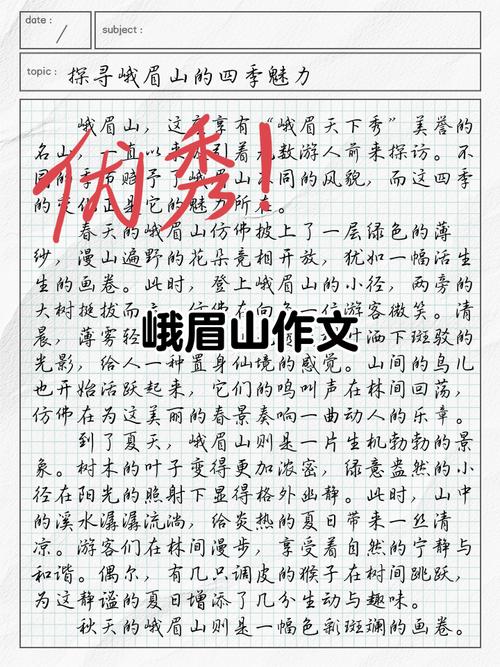 date :
subject :
topic : 探寻峨眉山的四季魅力
峨眉山，这座享有“峨眉天下秀”美誉的
名山，一直以来吸引着无数游人前来探访。不
同的季节赋予了峨眉山不同的风貌，而这四季
的变化正是它的魅力所在。
优秀!
春天的峨眉山仿佛披上了一层绿色的薄
纱，漫山遍野的花朵竞相开放，犹如一幅活生
生的画卷。此时，登上峨眉山的小径，两旁的
大树挺拔而立，仿佛在向每一位游客微笑。清
晨，薄雾轻
叶洒下斑驳的
峨眉山作文
光影，给人一种置身仙境的感觉。山间的鸟儿
也开始活跃起来，它们的鸣叫声在林间回荡，
仿佛在为这美丽的春景奏响一曲动人的乐章。
到了夏天，峨眉山则是一片生机勃勃的景
象。树木的叶子变得更加浓密，绿意盎然的小
径在阳光的照射下显得格外幽静。此时，山中
的溪水潺潺流淌，给炎热的夏日带来一丝清
凉。游客们在林间漫步，享受着自然的宁静与
和谐。偶尔，有几只调皮的猴子在树间跳跃，
为这静谧的夏日增添了几分生动与趣味。
秋天的峨眉山则是一幅色彩斑斓的画卷。